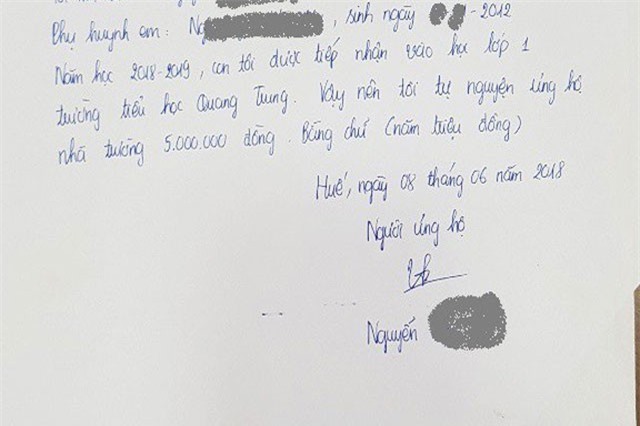 Phụ huynh em: Ng , sinh ngày -2012
Năm học 2018-2019, con tôi được tiếp nhận vào học lớp 1
trường tiểu học Quang Trung. Vậy nên tôi tự nguyện ủng hộ
nhà trường 5.000.000 đồng. Bằng chữ (năm triệu đồng)
Huế, ngày 08 tháng 06 năm 2018
Người ủng hộ
Nguyễn